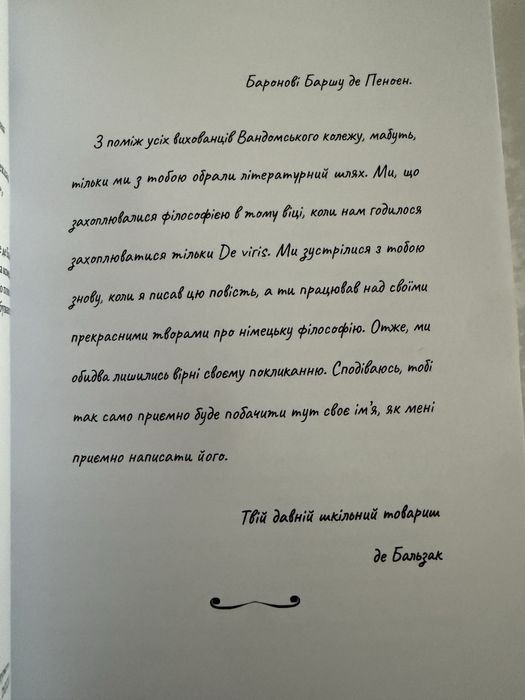 Баронові Баршу де Пеноен.
З поміж усіх вихованців Вандомського колежу, мабуть,
тільки ми з тобою обрали літературний шлях. Ми, що
захоплювалися філософією в тому віці, коли нам годилося
захоплюватися тільки De viris. Ми зустрілися з тобою
знову, коли я писав цю повість, а ти працював над своїми
прекрасними творами про німецьку філософію. Отже, ми
обидва лишились вірні своєму покликанню. Сподіваюсь, тобі
так само приємно буде побачити тут своє ім’я, як мені
приємно написати його.
Твій давній шкільний товариш
де Бальзак